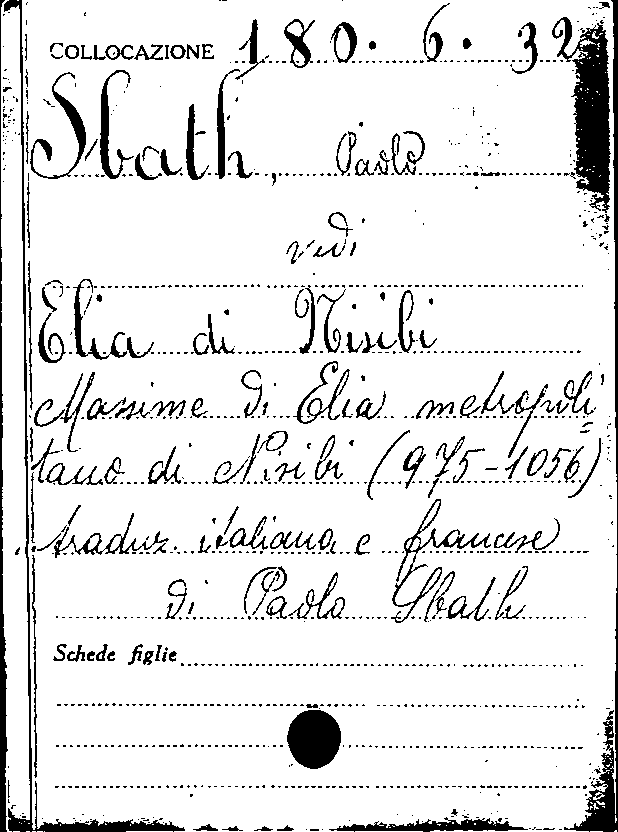 COLLOCAZIONE 180. 6. 32
Sbath, Paolo
vedi
Elia di Nisibi
Massime di Elia metropoli=
tano di Nisibi (975-1056)
traduz. italiana e francese
di Paolo Sbath
Schede figlie